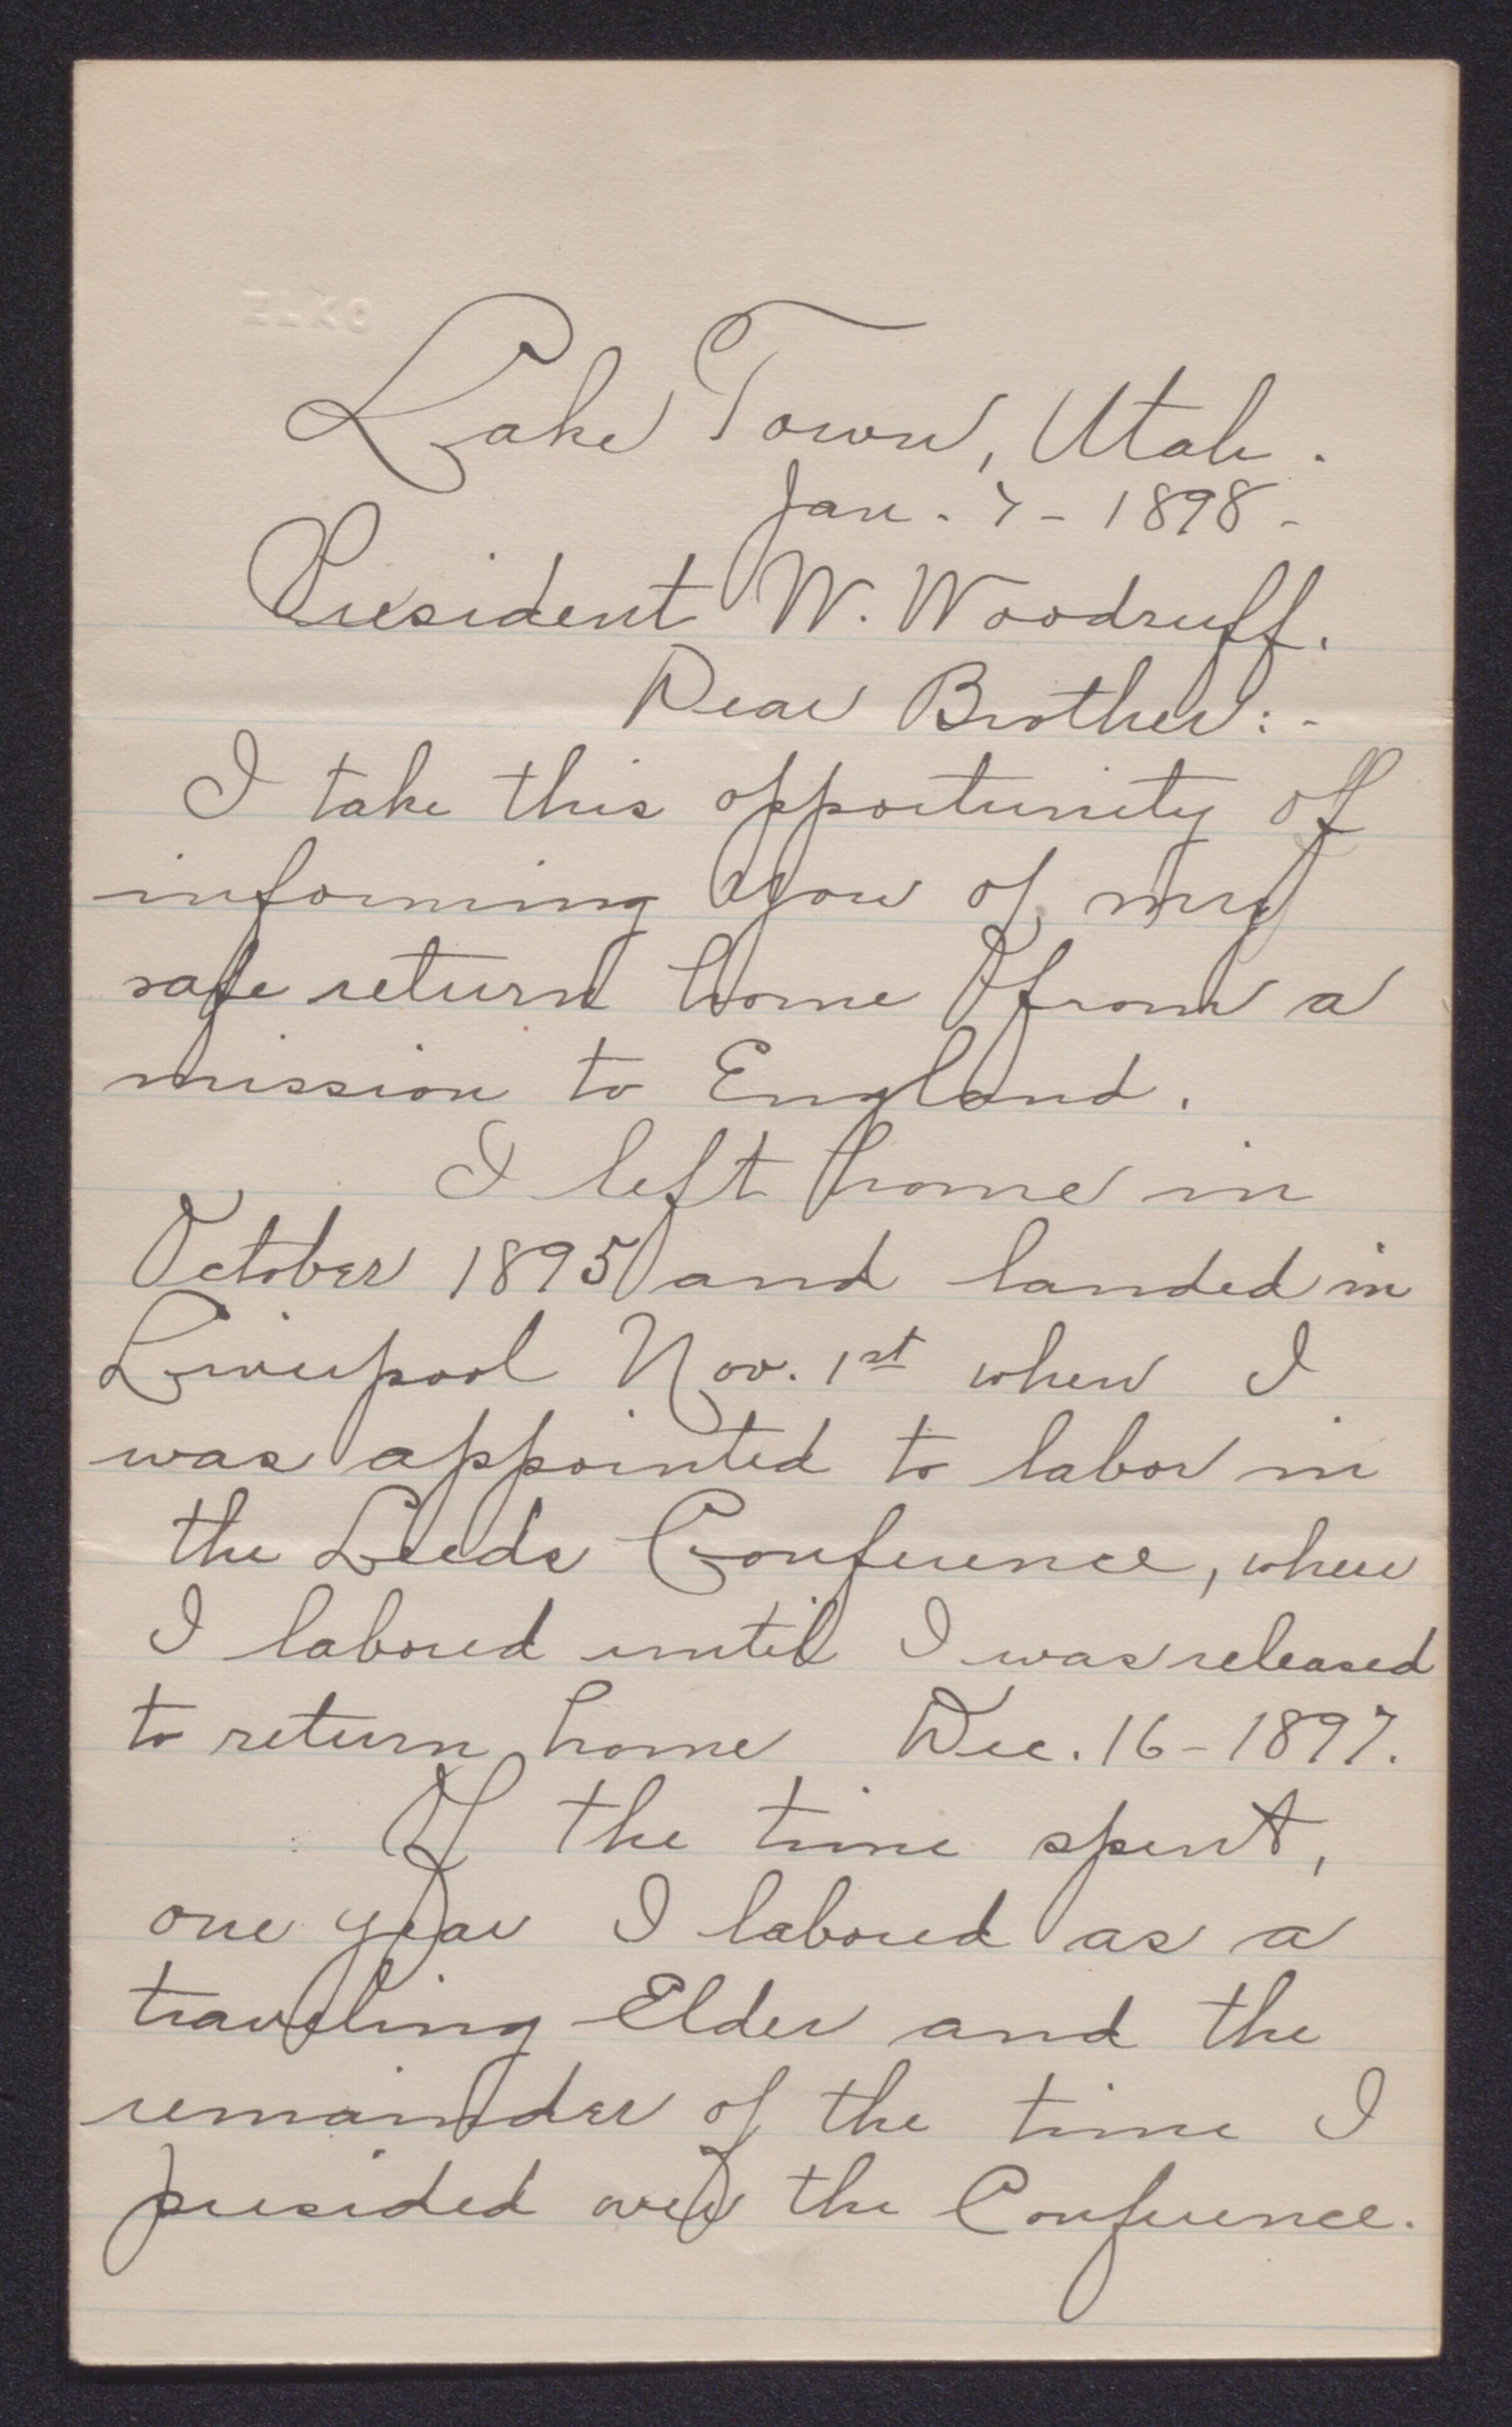 ELKO
Lake Town, Utah.
Jan. 7 - 1898 -
President W. Woodruff.
Dear Brother: -
I take this opportunity of
informing you of my
safe return home from a
mission to England.
I left home in
October 1895 and landed in
Liverpool Nov. 1st when I
was appointed to labor in
the Leeds Conference, where
I labored until I was released
to return home Dec. 16 - 1897.
Of the time spent,
one year I labored as a
traveling Elder and the
remainder of the time I
presided over the Conference.